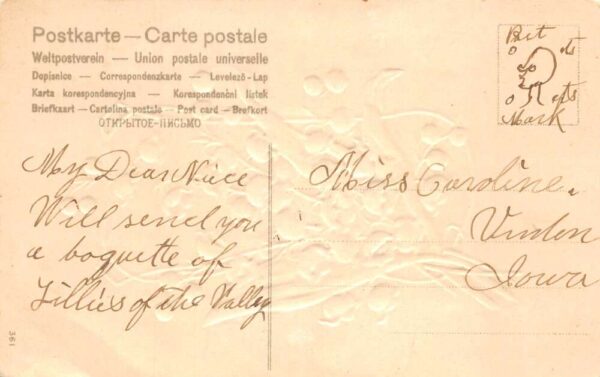 Postkarte — Carte postale
Weltpostverein — Union postale universelle
Dopisnice — Correspondenzkarte — Levelező-Lap
Karta korespondencyjna — Korespondenčni listek
Briefkaart — Cartolina postale — Post card — Brefkort
ОТКРЫТОЕ-ПИСЬМО
My Dear Niece
Will send you
a boquette of
Lillies of the Valley
Miss Caroline.
Vinton
Iowa
Mark
361